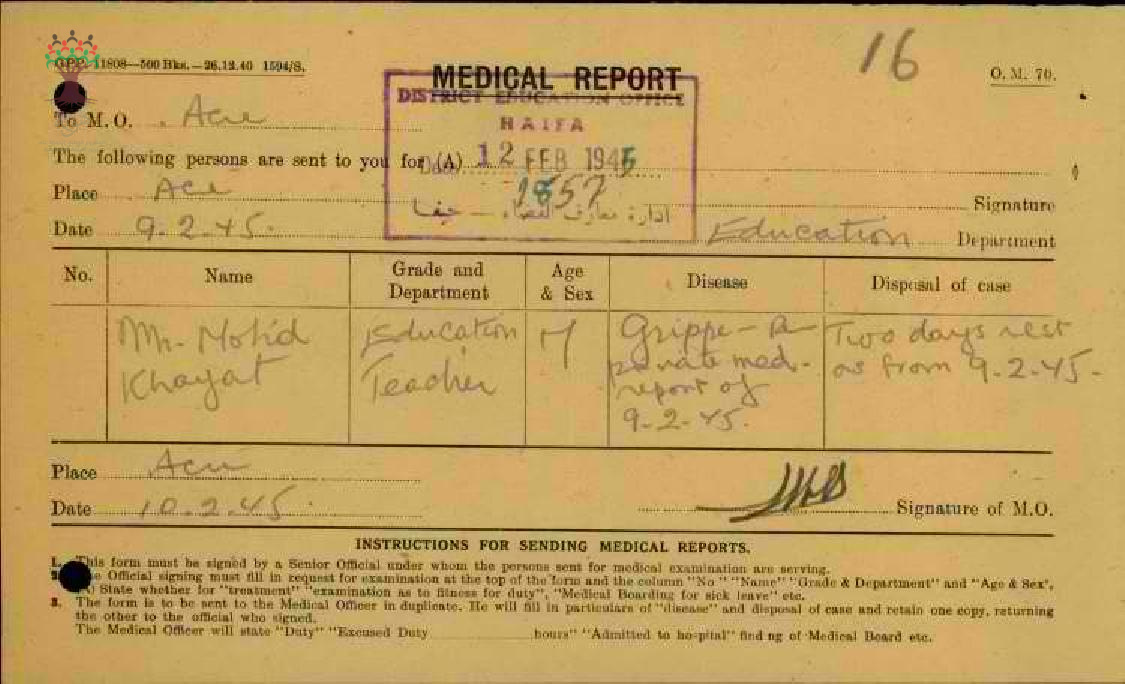 16
GPP. 11808—500 Bks.—26.12.40 1594/S.
MEDICAL REPORT
O. M. 70.
DISTRICT EDUCATION OFFICE
HAIFA
To M.O. Acre
The following persons are sent to you for (A)
Date 12 FEB 1945
1857
Place Acre
Signature
ادارة معارف لواء — حيفا
Date 9.2.45.
Education Department
No. Name Grade and Department Age & Sex Disease Disposal of case
Mr. Mohid Education M Grippe - Two days rest
Khayat Teacher private med. as from 9.2.45.
report of
9.2.45.
Place Acre
Date 10.2.45.
Signature of M.O.
INSTRUCTIONS FOR SENDING MEDICAL REPORTS.
1. This form must be signed by a Senior Official under whom the persons sent for medical examination are serving.
The Official signing must fill in request for examination at the top of the form and the column "No" "Name" "Grade & Department" and "Age & Sex".
(A) State whether for "treatment" "examination as to fitness for duty", "Medical Boarding for sick leave" etc.
3. The form is to be sent to the Medical Officer in duplicate. He will fill in particulars of "disease" and disposal of case and retain one copy, returning
the other to the official who signed.
The Medical Officer will state "Duty" "Excused Duty hours" "Admitted to hospital" finding of Medical Board etc.